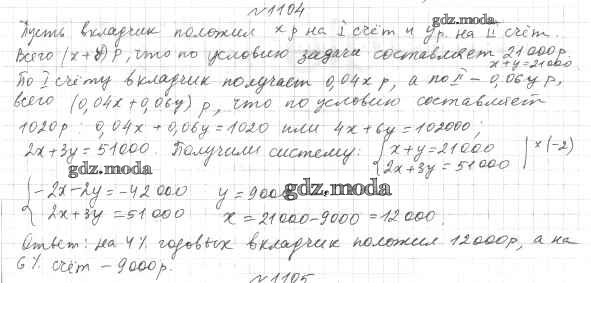 №1104
Пусть вкладчик положил x р на I счёт и y р. на II счёт.
gdz.moda
Всего (x+y) р, что по условию задачи составляет 21000 р.
x+y=21000
По I счёту вкладчик получает 0,04x р, а по II – 0,06y р,
всего (0,04x+0,06y) р, что по условию составляет
1020 р: 0,04x+0,06y=1020 или 4x+6y=102000;
2x+3y=51000. Получили систему: { x+y=21000 | x(-2)
2x+3y=51000
gdz.moda
{ -2x-2y=-42000 y=9000
gdz.moda
2x+3y=51000 x=21000-9000=12000.
Ответ: на 4% годовых вкладчик положил 12000р, а на
6% счёт – 9000р.
№1105